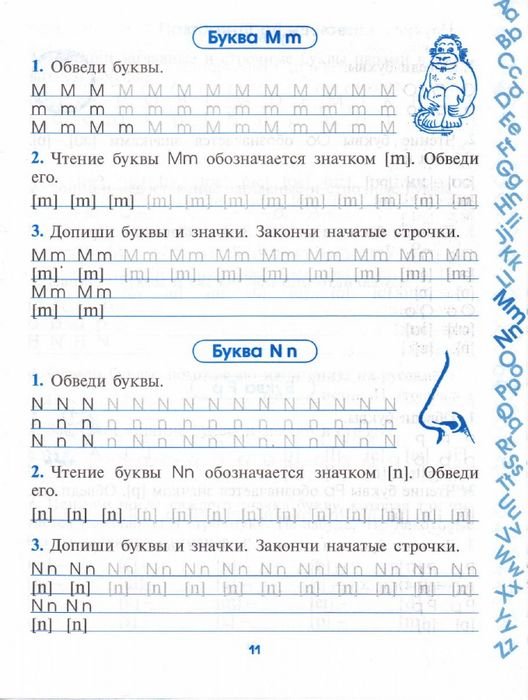 Буква M m
1. Обведи буквы.
M M M M M M M M M M M M M
m m m m m m m m m m m m m
M m M m M m M m M m M m M
2. Чтение буквы Mm обозначается значком [m]. Обведи
его.
[m] [m] [m] [m] [m] [m] [m] [m] [m] [m] [m] [m]
3. Допиши буквы и значки. Закончи начатые строчки.
Mm Mm Mm Mm Mm Mm Mm Mm Mm Mm
[m] [m] [m] [m] [m] [m] [m] [m] [m] [m]
Mm Mm
[m] [m]
Буква N n
1. Обведи буквы.
N N N N N N N N N N N N N N N
n n n n n n n n n n n n n n n
N n N n N n N n N n N n N n N
2. Чтение буквы Nn обозначается значком [n]. Обведи
его.
[n] [n] [n] [n] [n] [n] [n] [n] [n] [n] [n] [n] [n]
3. Допиши буквы и значки. Закончи начатые строчки.
Nn Nn Nn Nn Nn Nn Nn Nn Nn Nn Nn Nn
[n] [n] [n] [n] [n] [n] [n] [n] [n] [n] [n] [n]
Nn Nn
[n] [n]
11
Aa Bb Cc Dd Ee Ff Gg Hh Ii Jj Kk Ll Mm Nn Oo Pp Qq Rr Ss Tt Uu Vv Ww Xx Yy Zz